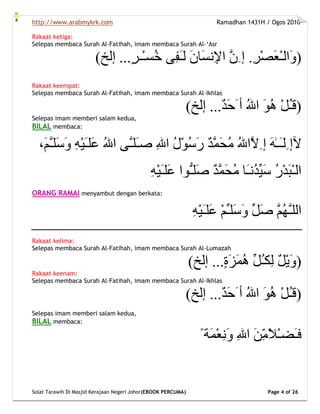 http://www.arabmykrk.com Ramadhan 1431H / Ogos 2010
Rakaat ketiga:
Selepas membaca Surah Al-Fatihah, imam membaca Surah Al-‘Asr
(وَالْـعَصْرِ. إِنَّ الإِنسَانَ لَـفِى خُسْــرٍ... إلخ)
Rakaat keempat:
Selepas membaca Surah Al-Fatihah, imam membaca Surah Al-Ikhlas
(قُـلْ هُوَ اللهُ أَحَدٌ... إلخ)
Selepas imam memberi salam kedua,
BILAL membaca:
لآإِلَــٰـهَ إِلاَّاللهُ مُحَمَّدٌ رَسُوْلُ اللهِ صَـلَّـى اللهُ عَلَـيْهِ وَسَلَّـمَ،
الْـبَدْرُ سَيِّدُنَـا مُحَمَّدٌ صَلُّـوا عَلَـيْهِ
ORANG RAMAI menyambut dengan berkata:
اللـّـهُمَّ صَلِّ وَسَلِّـمْ عَلَـيْهِ
Rakaat kelima:
Selepas membaca Surah Al-Fatihah, imam membaca Surah Al-Lumazah
(وَيْلٌ لِكـُـلِّ هُمَزَةٍ... إلخ)
Rakaat keenam:
Selepas membaca Surah Al-Fatihah, imam membaca Surah Al-Ikhlas
(قُـلْ هُوَ اللهُ أَحَدٌ... إلخ)
Selepas imam memberi salam kedua,
BILAL membaca:
فَـضْـلاً مِّنَ اللهِ وَنِعْمَةً
Solat Tarawih Di Masjid Kerajaan Negeri Johor(EBOOK PERCUMA) Page 4 of 26